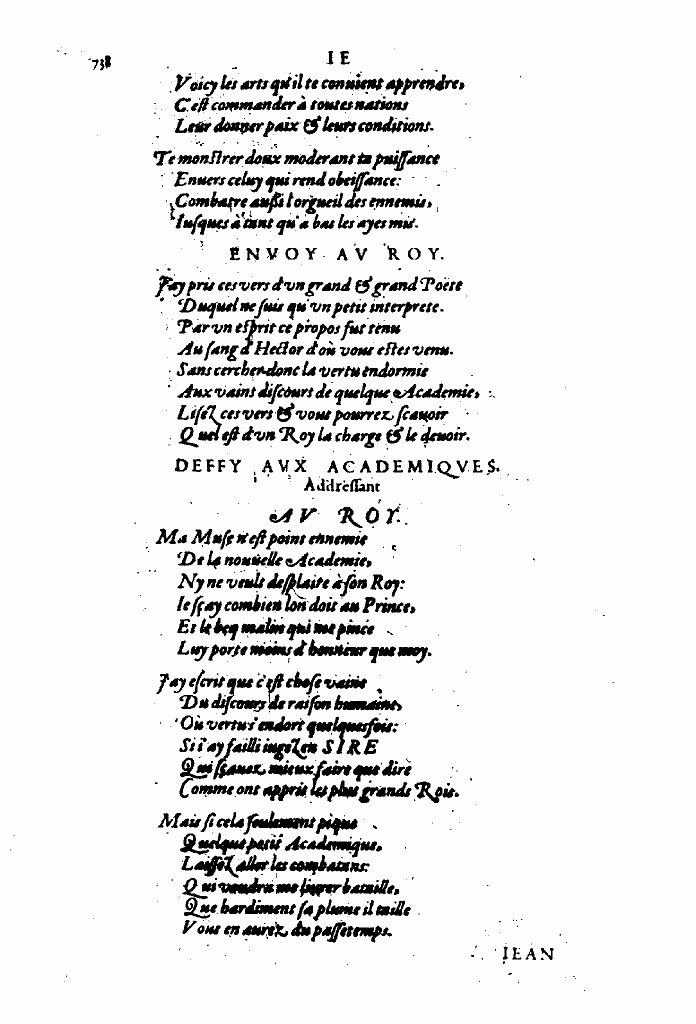 738
IE
Voicy les arts qu'il te conuient apprendre,
C'est commander à toutes nations
Leur donner paix & leurs conditions.
Te monstrer doux moderant ta puissance
Enuers celuy qui rend obeissance:
Combatre aussi l'orgueil des ennemis,
Iusques à tant qu'à bas les ayes mis.
ENVOY AV ROY.
J'ay pris ces vers d'vn grand & grand Poëte
Duquel ne suis qu'vn petit interprete.
Par vn esprit ce propos fut tenu
Au sang d'Hector d'où vous estes venu.
Sans cercher donc la vertu endormie
Aux vains discours de quelque Academie,
Lisez ces vers & vous pourrez scauoir
Quel est d'vn Roy la charge & le deuoir.
DEFFY AVX ACADEMIQVES.
Addressant
AV ROY.
Ma Muse n'est point ennemie
De la nouuelle Academie,
Ny ne veult desplaire à son Roy:
Ie sçay combien lon doit au Prince,
Et le beq malin qui me pince
Luy porte moins d'honneur que moy.
J'ay escrit que c'est chose vaine
Du discours de raison humaine,
Où vertu s'endort quelquesfois:
Si i'ay failli iugez en SIRE
Qui sçauez mieux faire que dire
Comme ont appris les plus grands Rois.
Mais si cela seulement pique
Quelque petit Academique,
Laissez aller les combatans:
Qui voudra me liurer bataille,
Que hardiment sa plume il taille
Vous en aurez du passetemps.
JEAN